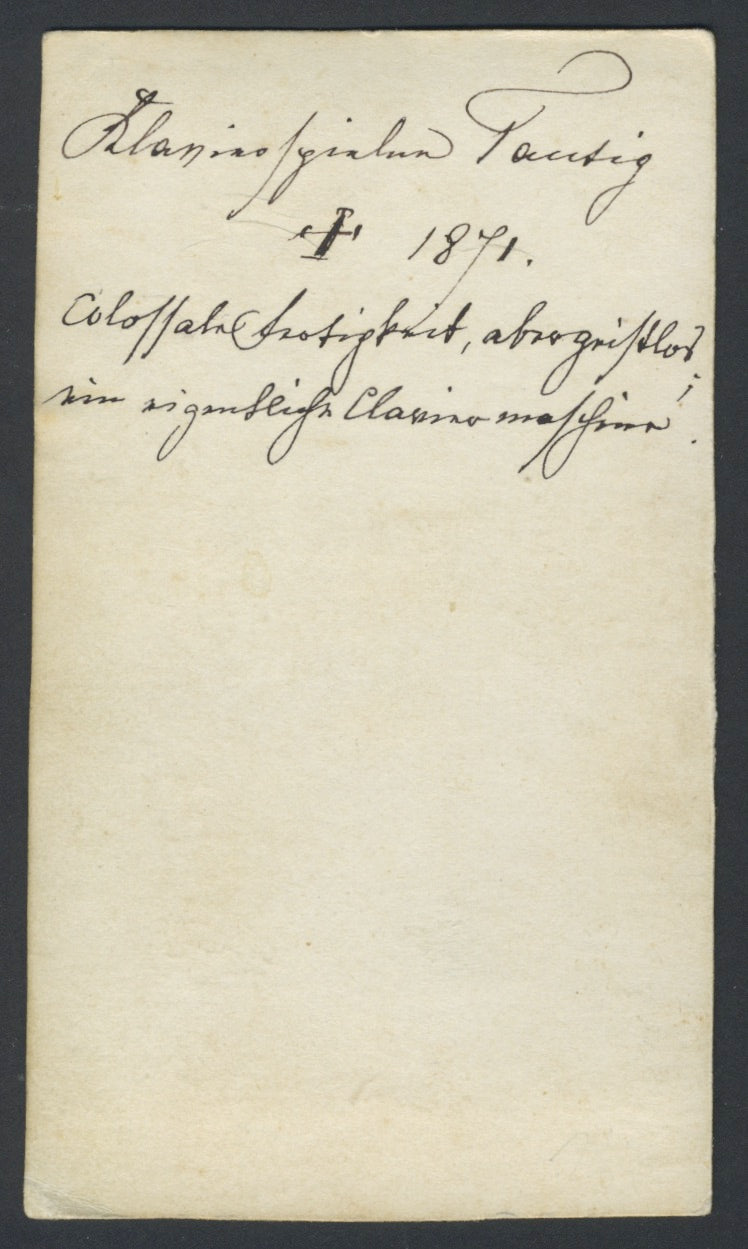 Klavierspieler Tausig
† 1871.
Colossale Fertigkeit, aber geistlos;
eine eigentliche Claviermaschine.